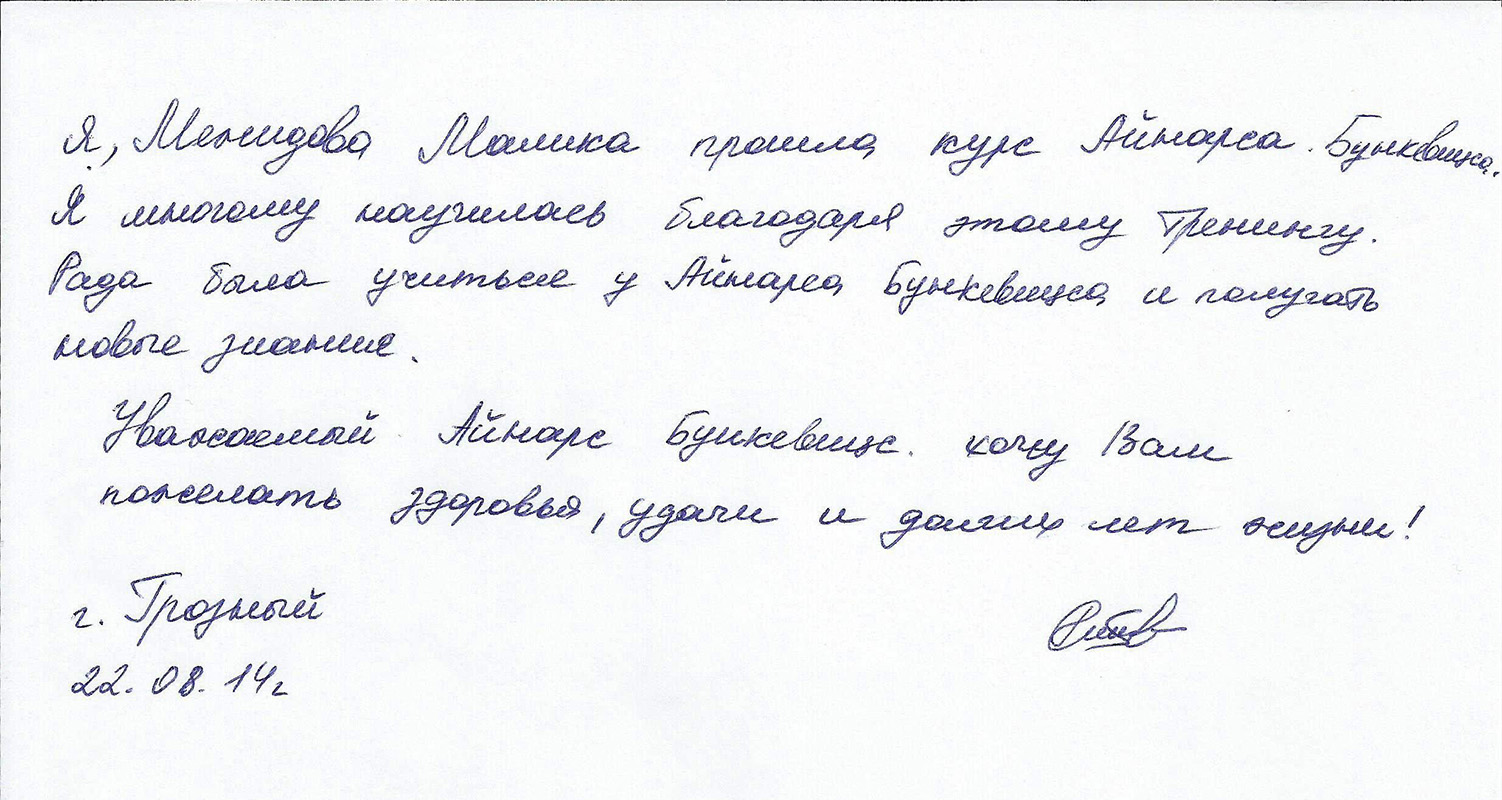 Я, Межидова Малика прошла курс Айнарса Бункевицса.
Я многому научилась благодаря этому тренингу.
Рада была учиться у Айнарса Бункевицса и получать
новые знания.
Уважаемый Айнарс Бункевицс. хочу Вам
пожелать здоровья, удачи и долгих лет жизни!
г. Грозный
22.08.14г